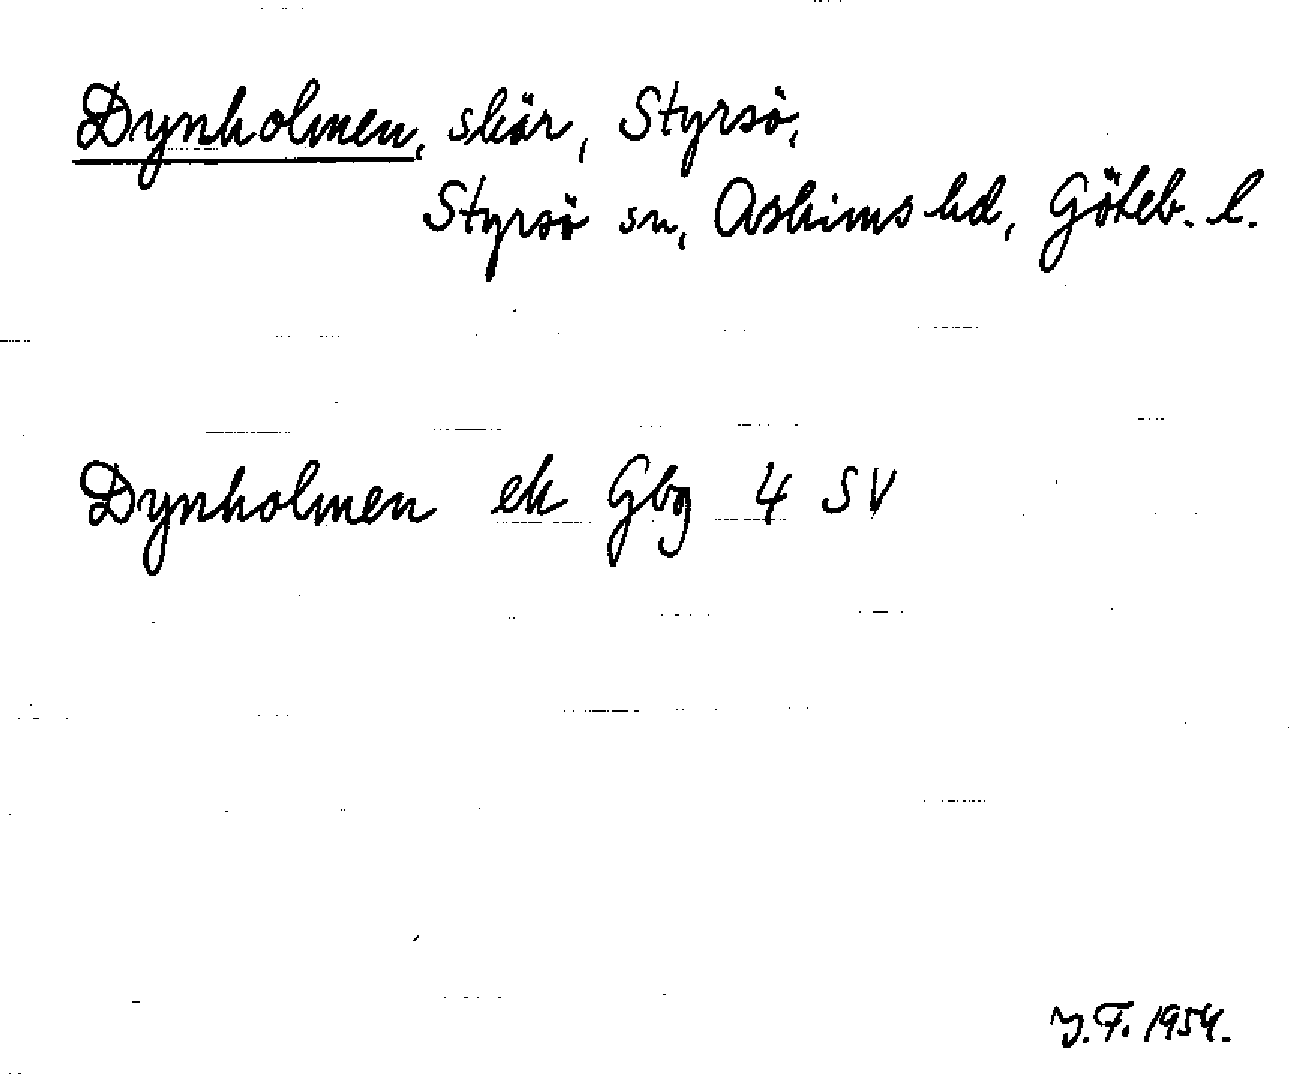 Dynholmen, skär, Styrsö,
Styrsö sn, Askims hd, Göteb. l.
Dynholmen ek Gbg 4 SV
Y.F. 1954.